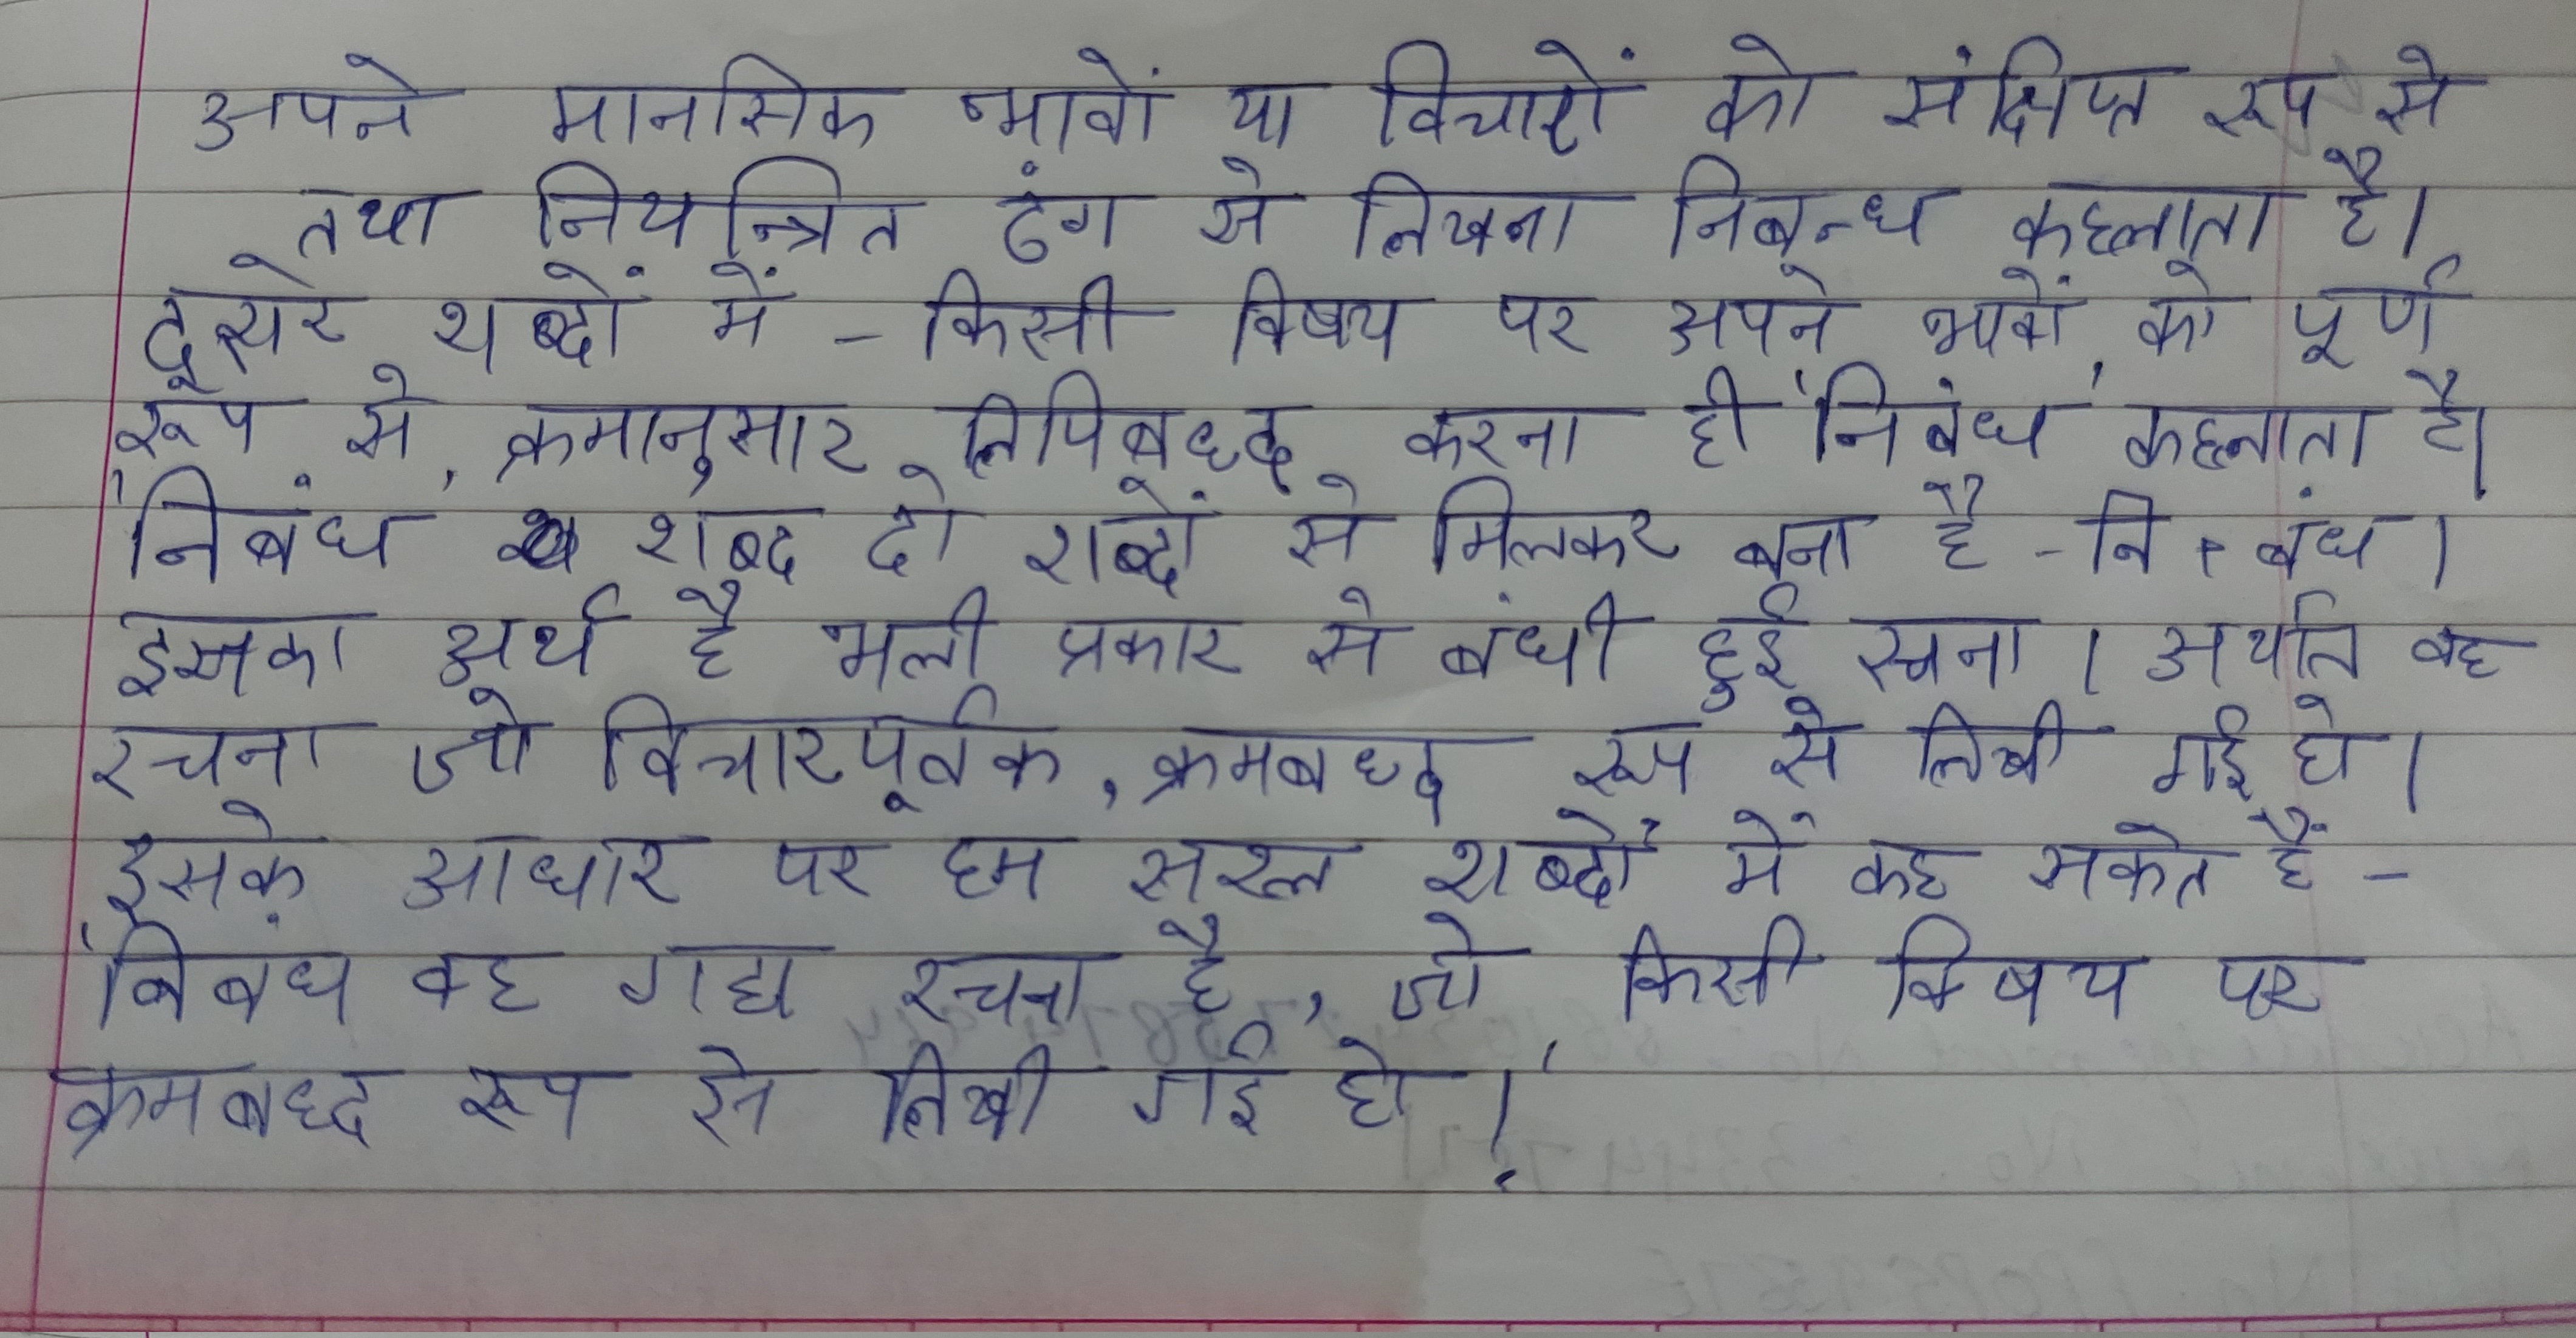 अपने मानसिक भावों या विचारों को संक्षिप्त रूप से
तथा नियन्त्रित ढंग से लिखना निबन्ध कहलाता है।
दूसरे शब्दों में - किसी विषय पर अपने भावों को पूर्ण
रूप से, क्रमानुसार लिपिबध्द करना ही 'निबंध' कहलाता है।
'निबंध' शब्द दो शब्दों से मिलकर बना है - नि + बंध।
इसका अर्थ है भली प्रकार से बंधी हुई रचना। अर्थात वह
रचना जो विचारपूर्वक, क्रमबध्द रूप से लिखी गई हो।
इसके आधार पर हम सरल शब्दों में कह सकते हैं -
'निबंध वह गद्य रचना है, जो किसी विषय पर
क्रमबध्द रूप से लिखी गई हो।'